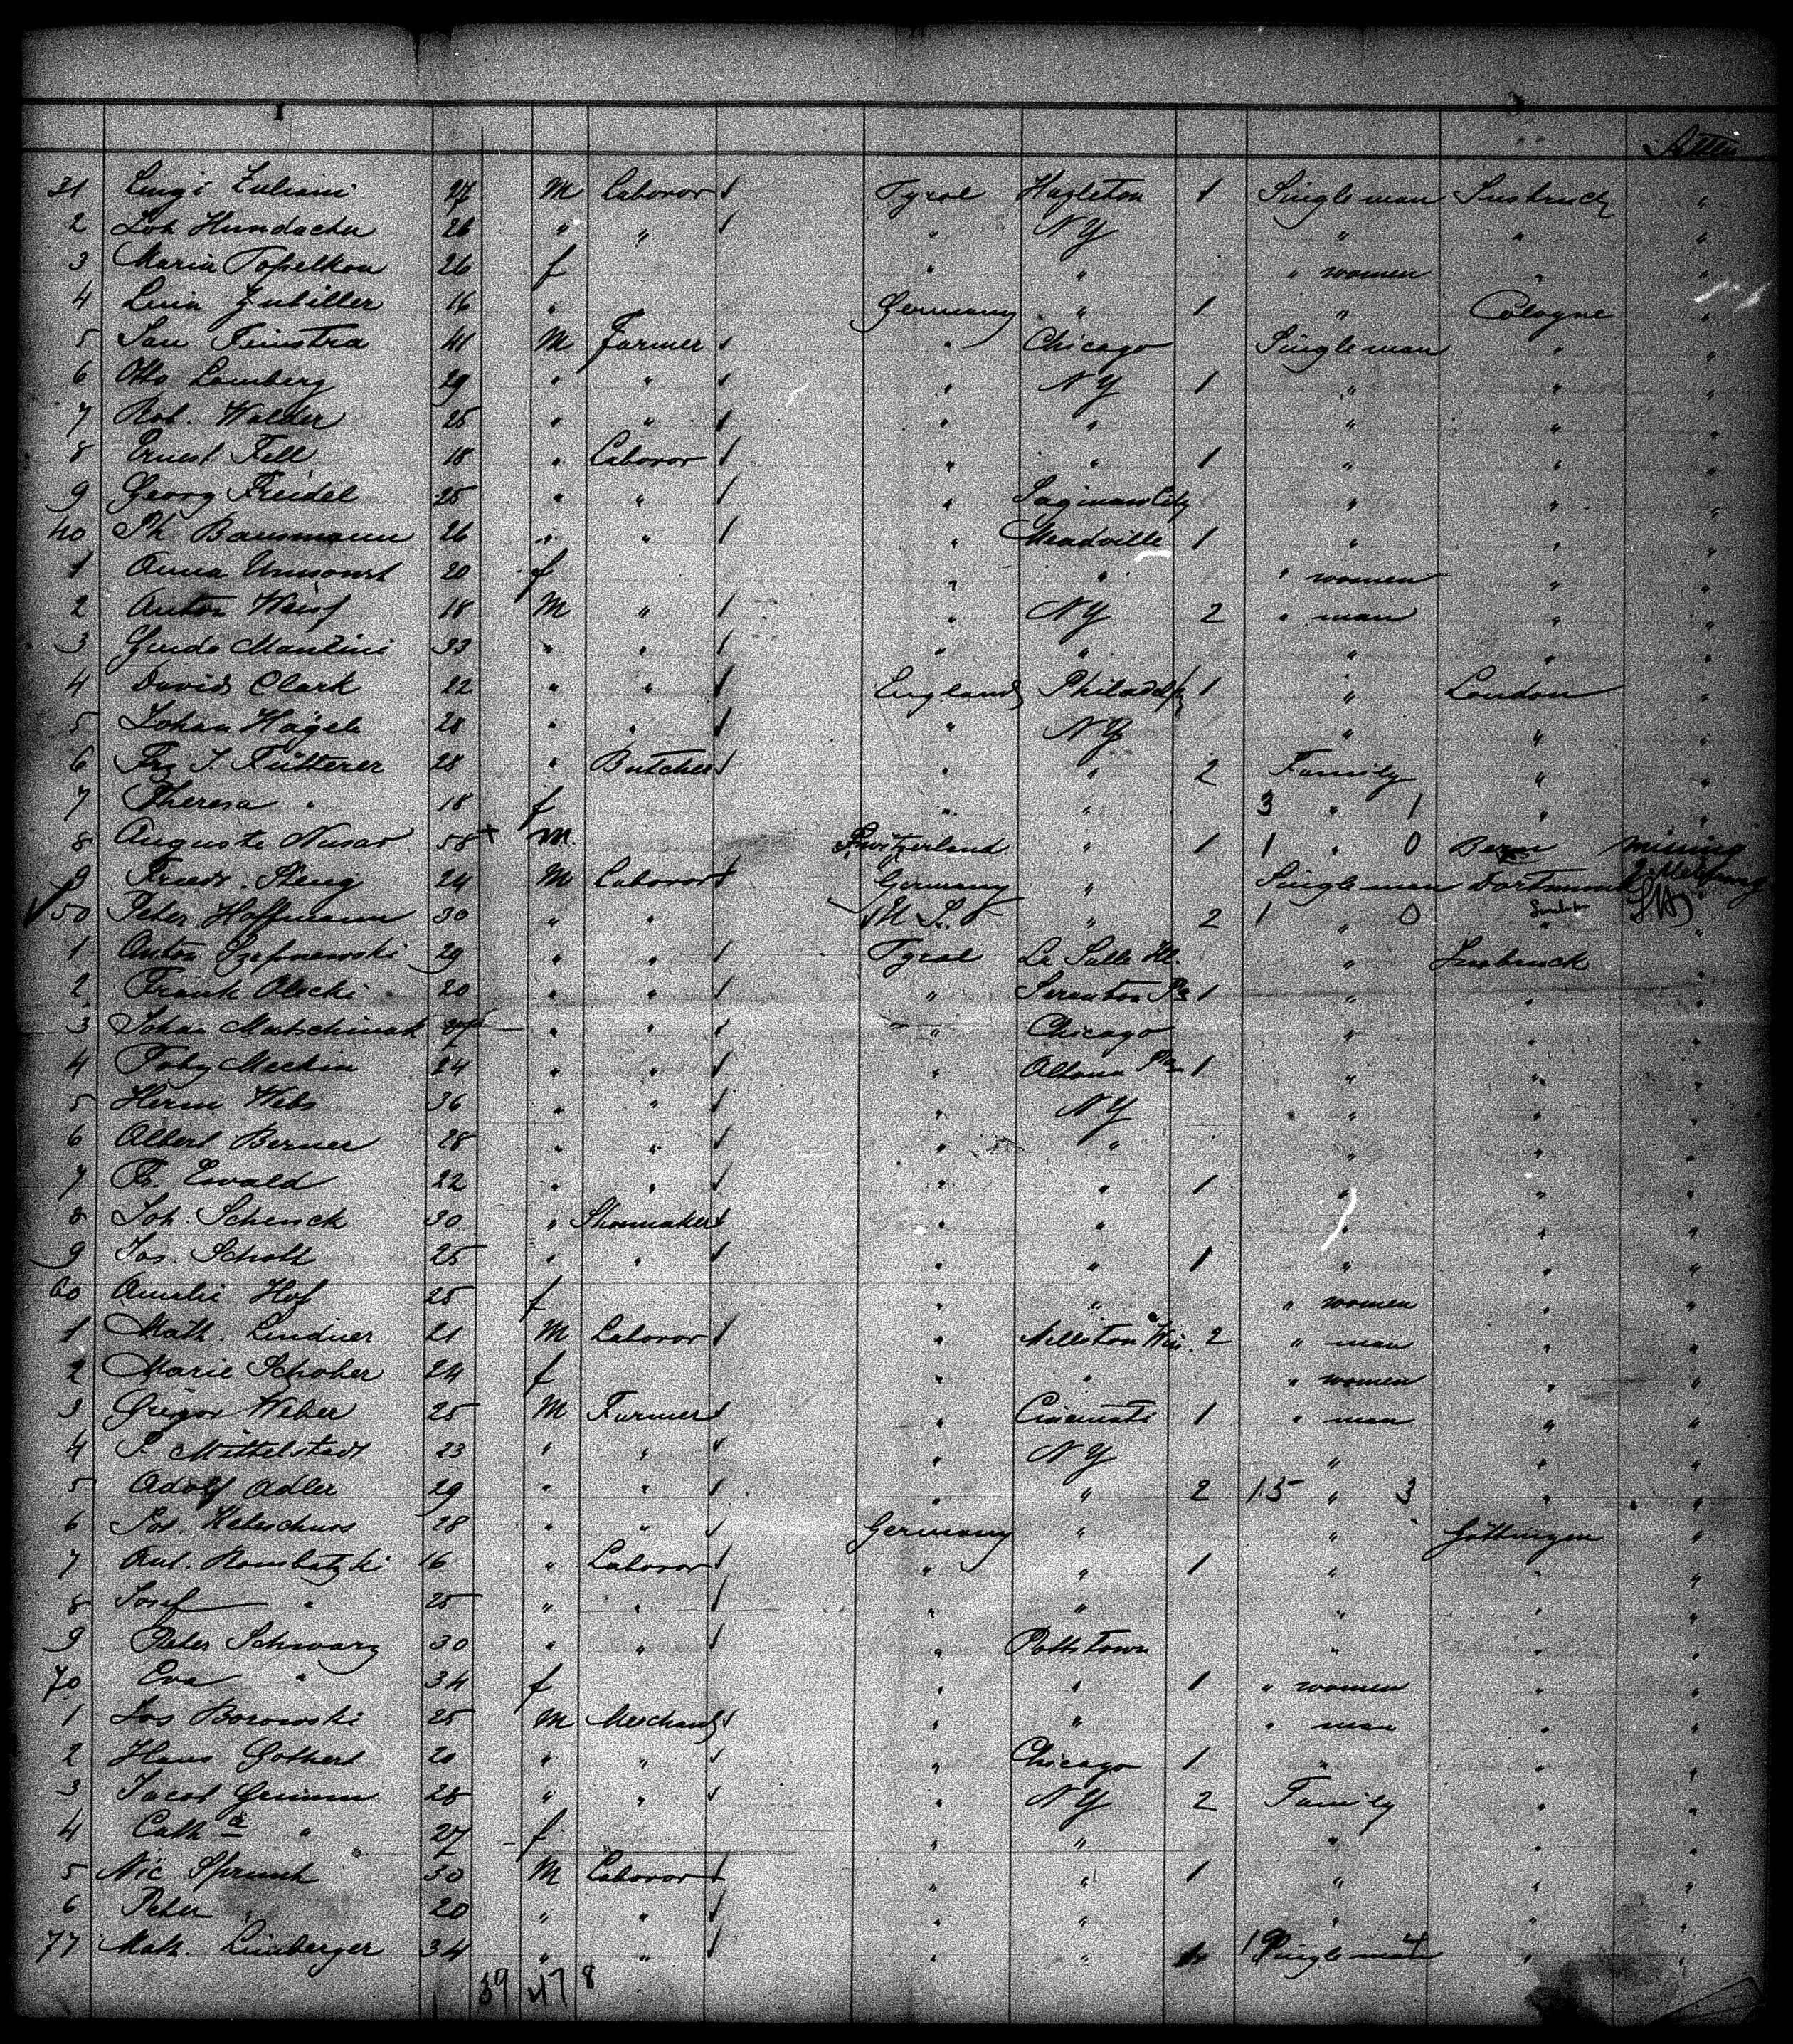 1 3
31 Luigi Zuliani 27 M Laboror Tyrol Hazleton 1 Single man Insbruck "
2 Joh Hundacher 26 " " " NY " " "
3 Maria 26 f " " " women " "
4 Lina Zubiller 16 " Germany " 1 " Cologne "
5 Jan Feinstra 41 M Farmer " Chicago Single man " "
6 Otto Lamberg 29 " " " NY 1 " " "
7 Rob. Walder 25 " " " " " " "
8 Ernest Fell 18 " Laboror " " 1 " " "
9 Georg Freidel 25 " " " Saginaw City " " "
40 Ph Bausmann 26 " " " Meadville 1 " " "
1 Anna 20 f " " " women " "
2 Anton Weiss 18 M " " NY 2 " man " "
3 Guido Mantini 33 " " " " " " "
4 David Clark 22 " " England Philadelph 1 " London "
5 Johan Hägele 28 " " " NY " " "
6 Frz J. Fütterer 28 " Butcher " " 2 Family " "
7 Theresa " 18 f " " 3 " 1 " "
8 Auguste Nusar 58 + M. Switzerland " 1 1 " 0 Bern missing
9 Friedr. Steng 24 M Laboror Germany " Single man Dortmund
50 Peter Hoffmann 30 " " U S. " 2 1 " 0 " "
1 Anton 29 " " Tyrol La Salle Ill. " Insbruck "
2 Frank Olecki 20 " " " Scranton Pa 1 " " "
3 Johan Matschinak 27 " " " Chicago " " "
4 Toby Mechin 24 " " " Altona Pa 1 " " "
5 Herm Webs 36 " " " NY " " "
6 Albert Berner 28 " " " " " " "
7 Fr. Ewald 22 " " " " 1 " " "
8 Joh. Schenck 30 " Shoemaker " " " " "
9 Jos. Scholl 25 " " " " 1 " " "
60 Amalie Hof 25 f " " " women " "
1 Math. Lindner 21 M Laboror " Millston Wis. 2 " man " "
2 Marie Schober 24 f " " " women " "
3 Gregor Weber 25 M Farmer " Cincinati 1 " man " "
4 P. Mittelstadt 23 " " " NY " " "
5 Adolf Adler 29 " " " " 2 15 " 3 " "
6 28 " " Germany " " Göttingen "
7 16 " Laboror " " 1 " " "
8 Josef " 25 " " " " " " "
9 Peter Schwarz 30 " " " Pottstown " " "
70 Eva " 34 f " " 1 " women " "
1 Jos Borowski 25 M Merchant " " " man " "
2 Hans Gothert 20 " " " Chicago 1 " " "
3 Jacob Grimm 28 " " " NY 2 Family " "
4 Catha " 27 f " " " " "
5 Nic Sprunk 30 M Laboror " " 1 " " "
6 Peter " 20 " " " " " " "
77 Math. Limberger 34 " " " " Single man " "
39 47 8